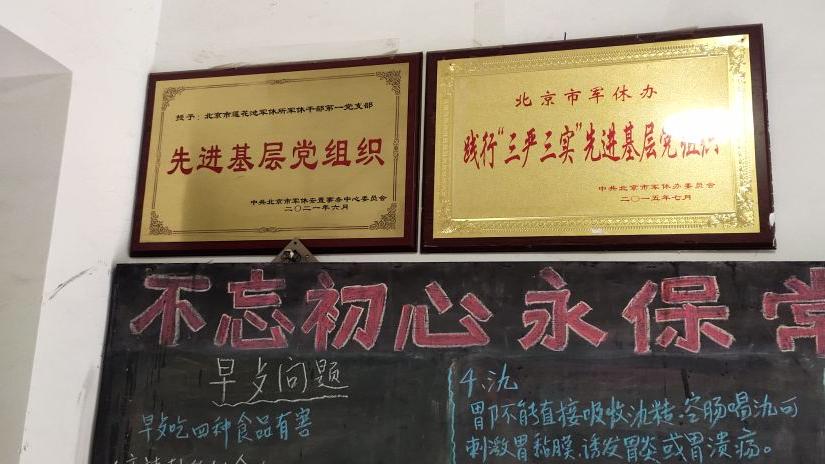 授予：北京市莲花池军休所军休干部第一党支部
先进基层党组织
中共北京市军休安置事务中心委员会
二〇二一年六月
北京市军休办
践行“三严三实”先进基层党组织
中共北京市军休办委员会
二〇一五年七月
不忘初心永保常
早歺问题
早歺吃四种食品有害
4、氿
胃不能直接吸收氿精、空肠喝氿可
刺激胃粘膜、诱发胃炎或胃溃疡。